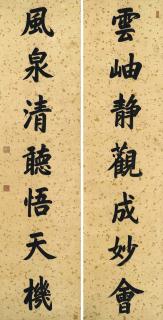 雲岫靜觀成妙會
風泉清聽悟天機